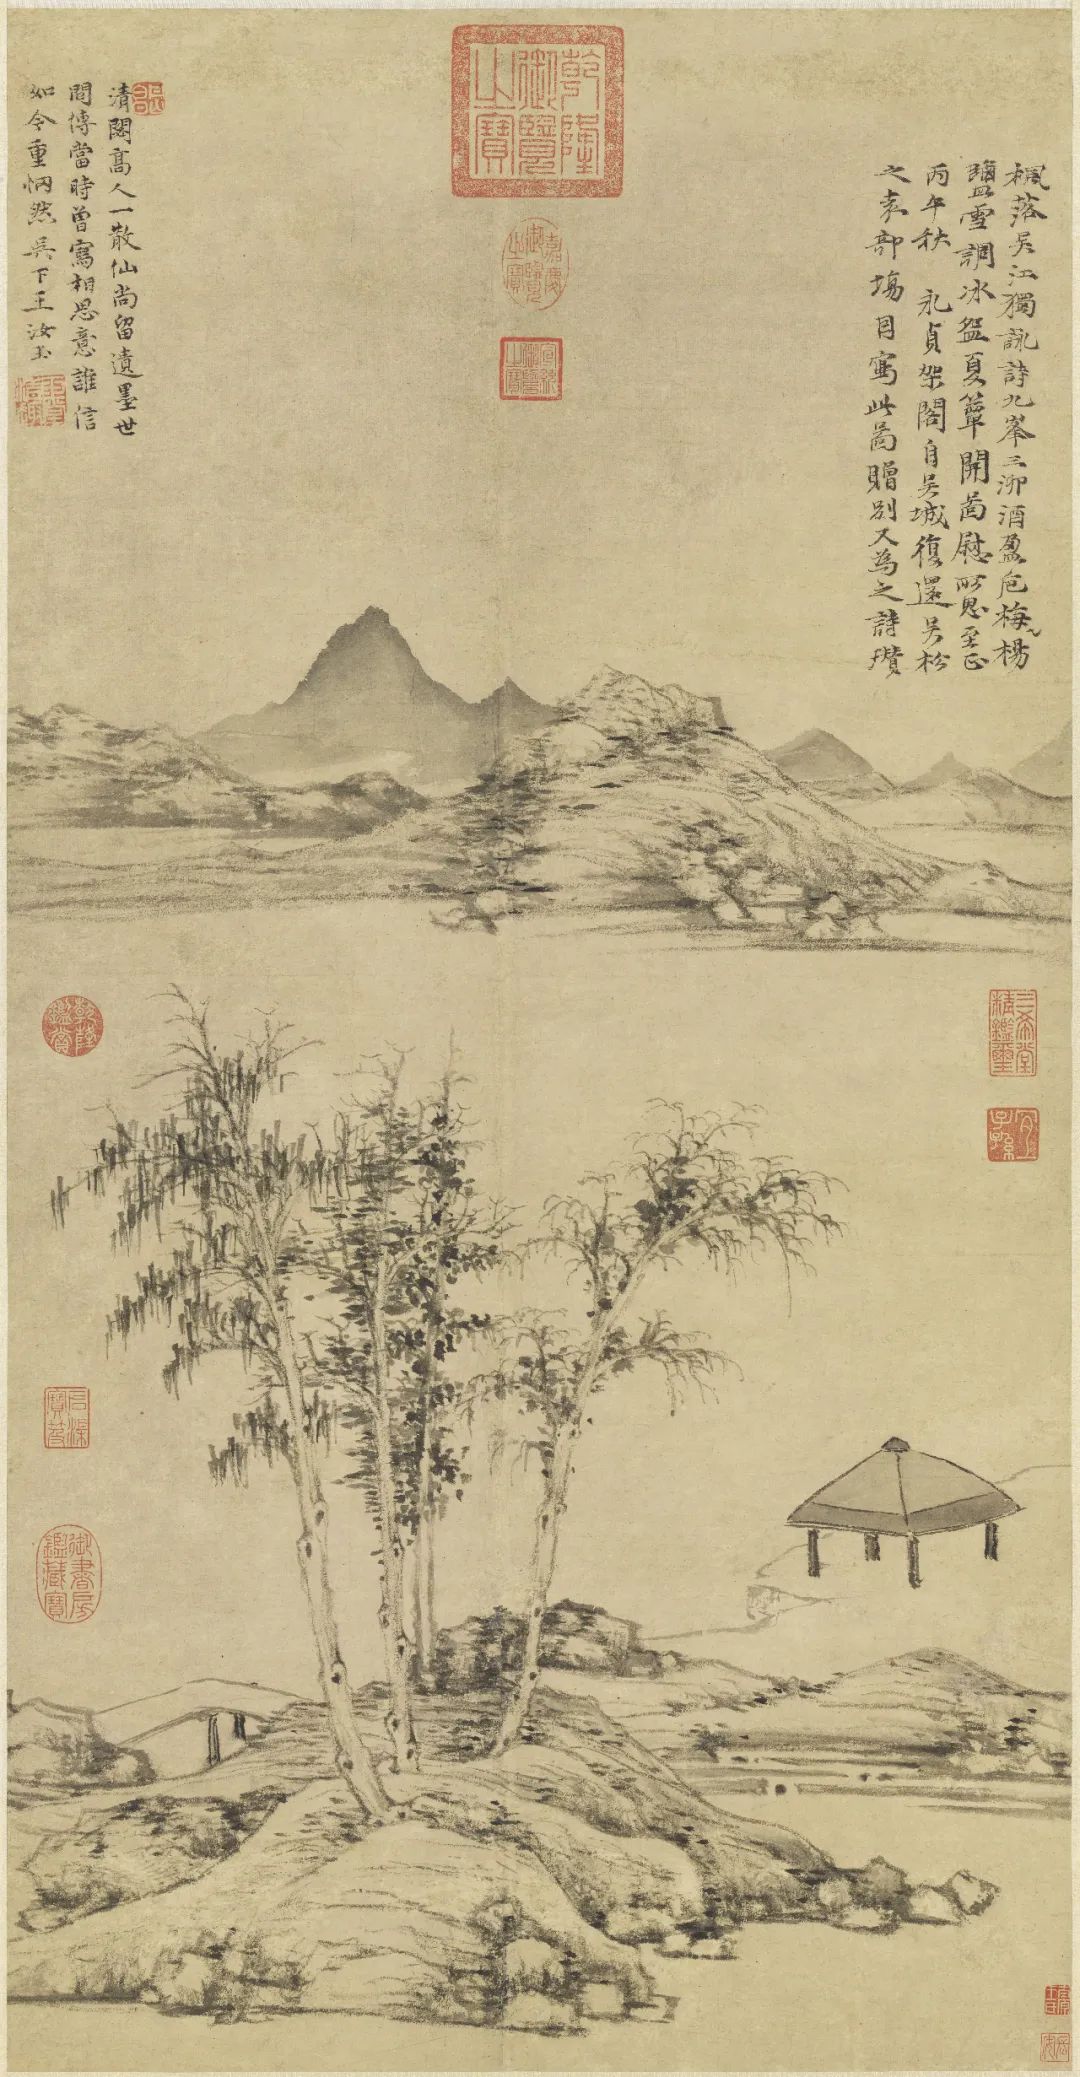 楓落吳江獨詠詩九峯三泖酒盈卮梅楊
鹽雪調冰盌夏簟開啚慰所思至正
丙午秋 永貞架閣自吳城復還吳松
之袁部場因寫此啚贈別又為之詩瓚
清閟高人一散仙尚留遺墨世
間傳當時曾寫相思意誰信
如今重惘然吳下王汝玉
乾隆
御覽
之寶
嘉慶
御覽
之寶
宣統
御覽
之寶
三希堂
精鑑璽
宜
子孫
乾隆
鑑賞
石渠
寶笈
御書房
鑑藏寶